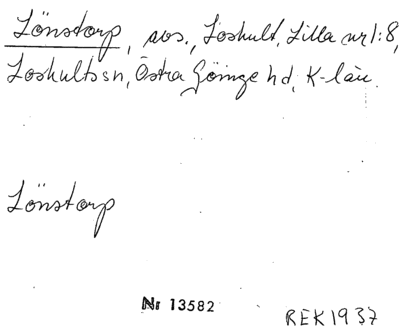 Lönstorp, sos., Loshult, Lilla nr 1:8,
Loshults sn, Östra Göinge hd, K-län.
Lönstorp
Nr 13582
REK 1937